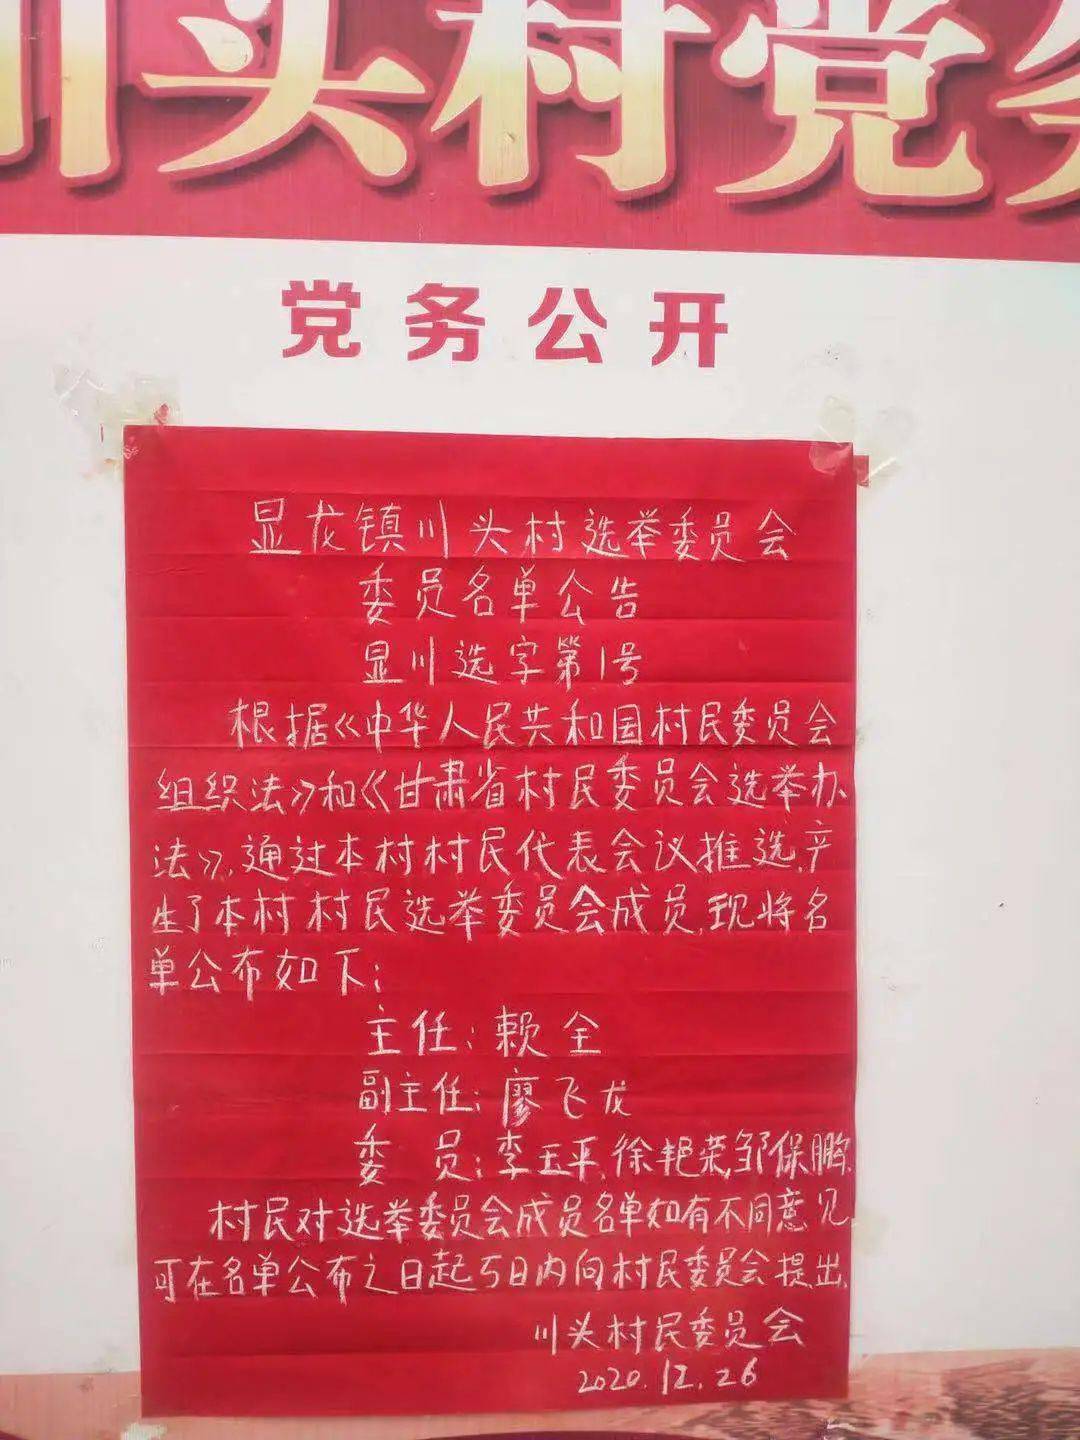 川头村党务
党务公开
显龙镇川头村选举委员会
委员名单公告
显川选字第1号
根据《中华人民共和国村民委员会
组织法》和《甘肃省村民委员会选举办
法》,通过本村村民代表会议推选,产
生了本村村民选举委员会成员,现将名
单公布如下:
主任:赖全
副主任:廖飞龙
委 员:李玉平,徐艳荣,邹保鹏.
村民对选举委员会成员名单如有不同意见
可在名单公布之日起5日内向村民委员会提出.
川头村民委员会
2020.12.26